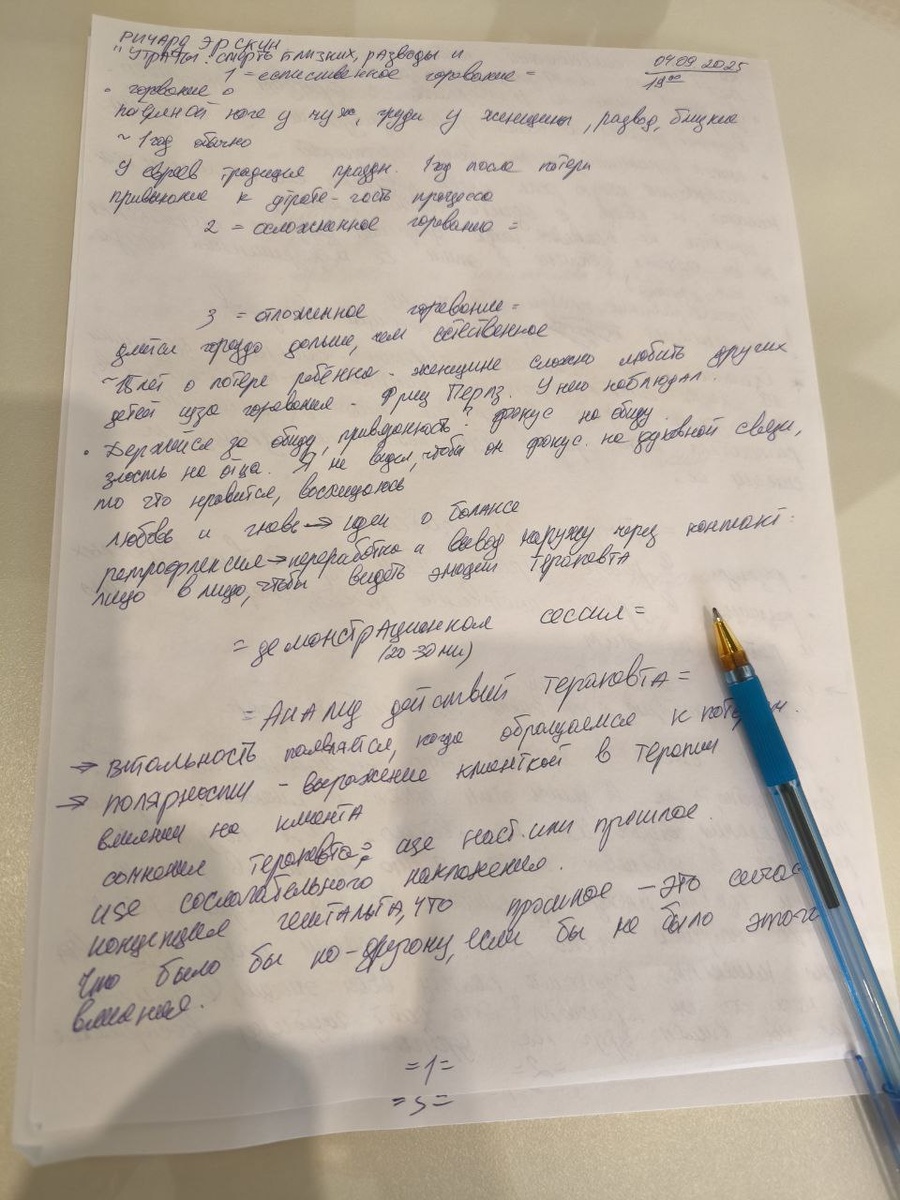 РИЧАРД ЭРСКИН
"УТРАТЫ: смерть близких, разводы и
04.09.2025
19⁰⁰
1 = естественное горевание =
• горевание о
ноге у муж, груди у женщины, развод, близкие
~ 1 год обычно
У евреев традиция праздн. 1 год после потери
привыкание к утрате - часть процесса
2 = осложненное горевание =
3 = отложенное горевание =
длится гораздо дольше, чем естественное
лет о потере ребёнка - женщине сложно любить других
детей из-за горевания - Фриц Перлз. У него наблюдал.
• Держайся за обиду, привязанность. фокус на обиду.
злость на отца. Я не видел, чтобы он фокус. на духовной связи,
то что нравится, восхищаюсь
любовь и гнев → идеи о балансе
ретрофлексия → переработка и вывод наружу через контакт:
лицо в лицо, чтобы видеть эмоции терапевта
= демонстрационная сессия =
(20-30 мин)
= Анализ действий терапевта =
→ витальность появляется, когда обращаемся к потерям.
→ полярности - выражение клиенткой в терапии
влияния на клиента
сомнения терапевта: use наст. или прошлое
use сослагательного наклонения.
концепция гештальта, что прошлое - это сейчас
Что было бы по-другому, если бы не было этого
влияния.
=1=
=5=